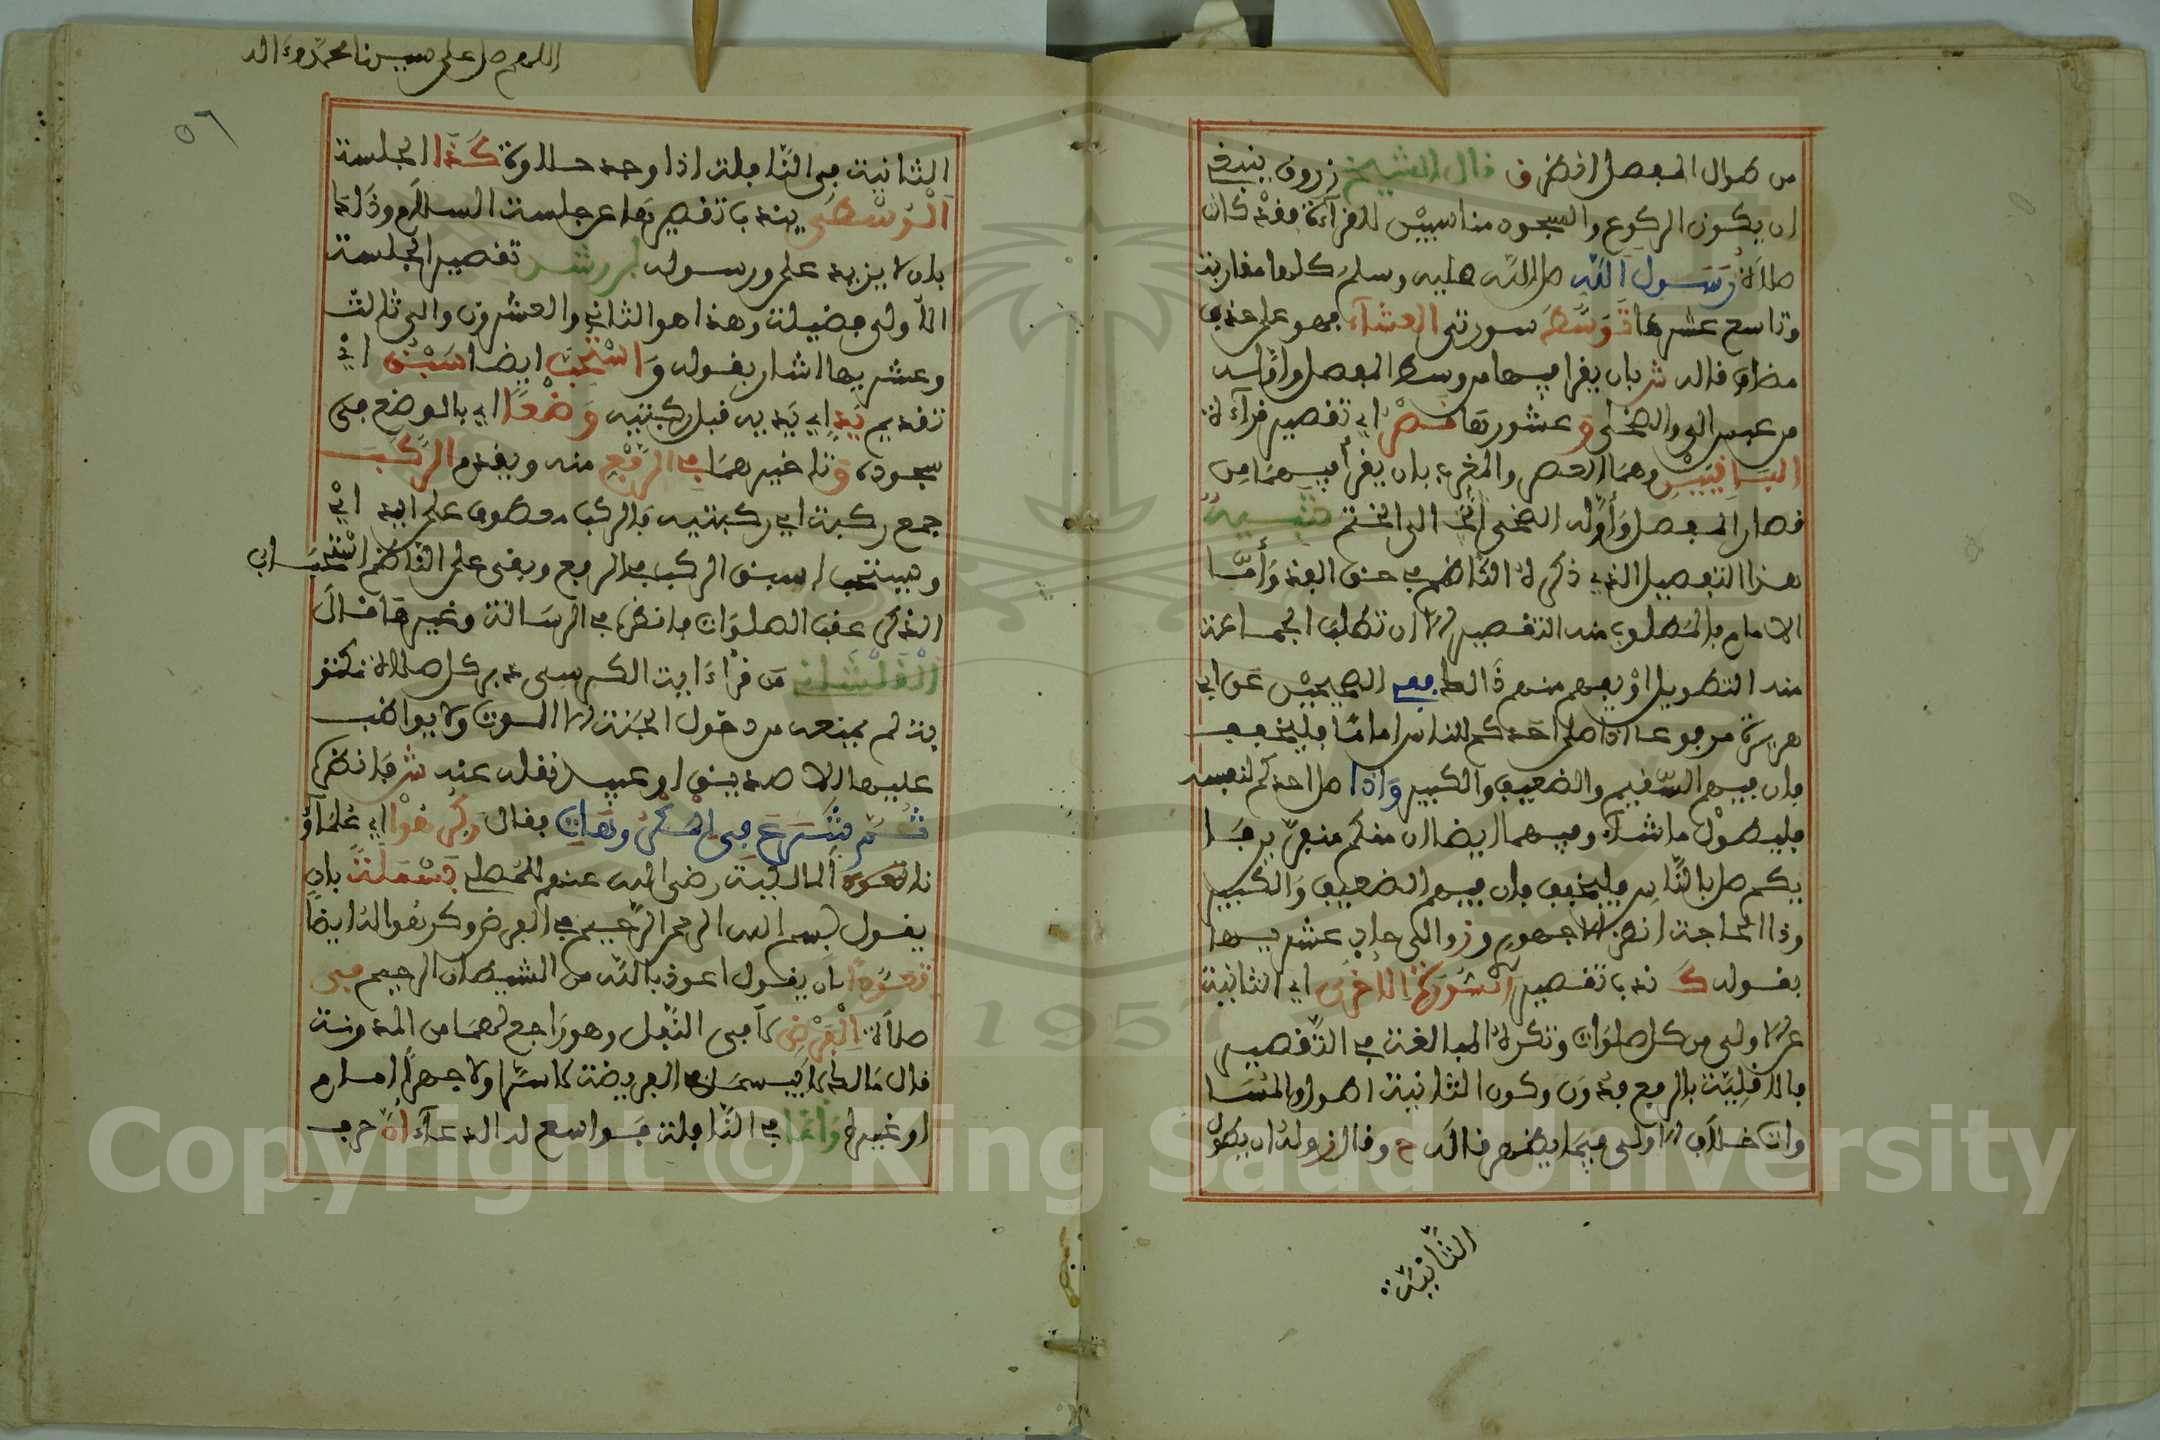 من طوال المفصل انظر ق قال الشيخ زروق ينبغي
ان يكون الركوع والسجود مناسبين للقرآءة فقد كان
صلاة رسول الله صلى الله عليه وسلم كلها مقاربة
وتاسع عشرها توسط سورتي العشآء فهو على حذف
مضاف قاله ش بان يقرأ فيهما من وسط المفصل واوّله
من عبس الى والضحى وعشورتها قصر اي تقصير قرآءة
الباقيين وهما العصر والمغرب بان يقرأ فيهما من
قصار المفصل وأوّله الضحى الخ الى الختم تنبيه
هذا التفصيل الذي ذكره الناظم في حق الفذ وأمّا
الامام فالمطلوب منه التقصير الا ان تطلب الجماعة
منه التطويل او يفهم منهم ذالك ففي الصحيحين عن ابي
هريرة مرفوعا اذا صلى احدكم للناس امامًا فليخفف
فان فيهم السّقيم والضعيف والكبير واذا صلى احدكم لنفسه
فليطوّل ما شآء وفيهما ايضا ان منكم منفرين فا
يكم صل بالنّاس فليخفف فان فيهم الضعيف والكبير
وذا الحاجة انظر الاجهوري و ز والى حادي عشريها
بقوله كـ ندب تقصير السّورة الاخرى اي الثانية
عن الاولى من كل صلوات وتكره المبالغة في التّقصير
فالاقليّة بالربع فدون وكون الثانية اطول والمسا
وات خلاف الاولى فيما يظهر قاله ح وقال ز وله ان يطول
الثّانية
اللهم صل على سيدنا محمد وءاله
٥٦
الثانية في النّافلة اذا وجد حلاوة كذا الجلسة
الوسطى يندب تقصيرها عن جلسة السلام وذلك
بان لا يزيد على ورسوله ابن رشد تقصير الجلسة
الأولى فضيلة وهذا هو الثاني والعشرون والى ثالث
وعشريها اشار بقوله واستحب ايضا سبق اي
تقديم يد اي يديه قبل ركبتيه وضعًا اي بالوضع في
سجوده وتاخيرهما في الرفع منه ويقدم الركب
جمع ركبة اي ركبتيه فالركب معطوف على اليد اي
وهيستحب سبق الركب في الرفع وبقى على النّاظم استحباب
الذكر عقب الصلوات فانظره في الرسالة وغيرها قال
القلشاني من قرأ ءاية الكرسى دبر كل صلاة مكتو
بة لم يمنعه من دخول الجنة الا الموت ولا يواظب
عليها الا صديق او عبيد نقله عنه ش فانظره
ثم شرع في المكروهات فقال وكرهوا اي علمآؤ
نا السادة المالكية رضي الله عنهم للمصلي بسملة بان
يقول بسم الله الرحمن الرّحيم في الفرض وكرهوا له ايضًا
تعوّذا بان يقول اعوذ بالله من الشيطان الرجيم في
صلاة الفرض لا في النّفل وهو راجع لهما من المدونة
قال مالك لا يبسمل في الفريضة لا سرّا ولا جهرًا امام
او غيره وأمّا في النّافلة فواسع له الدعآء اهـ حرف